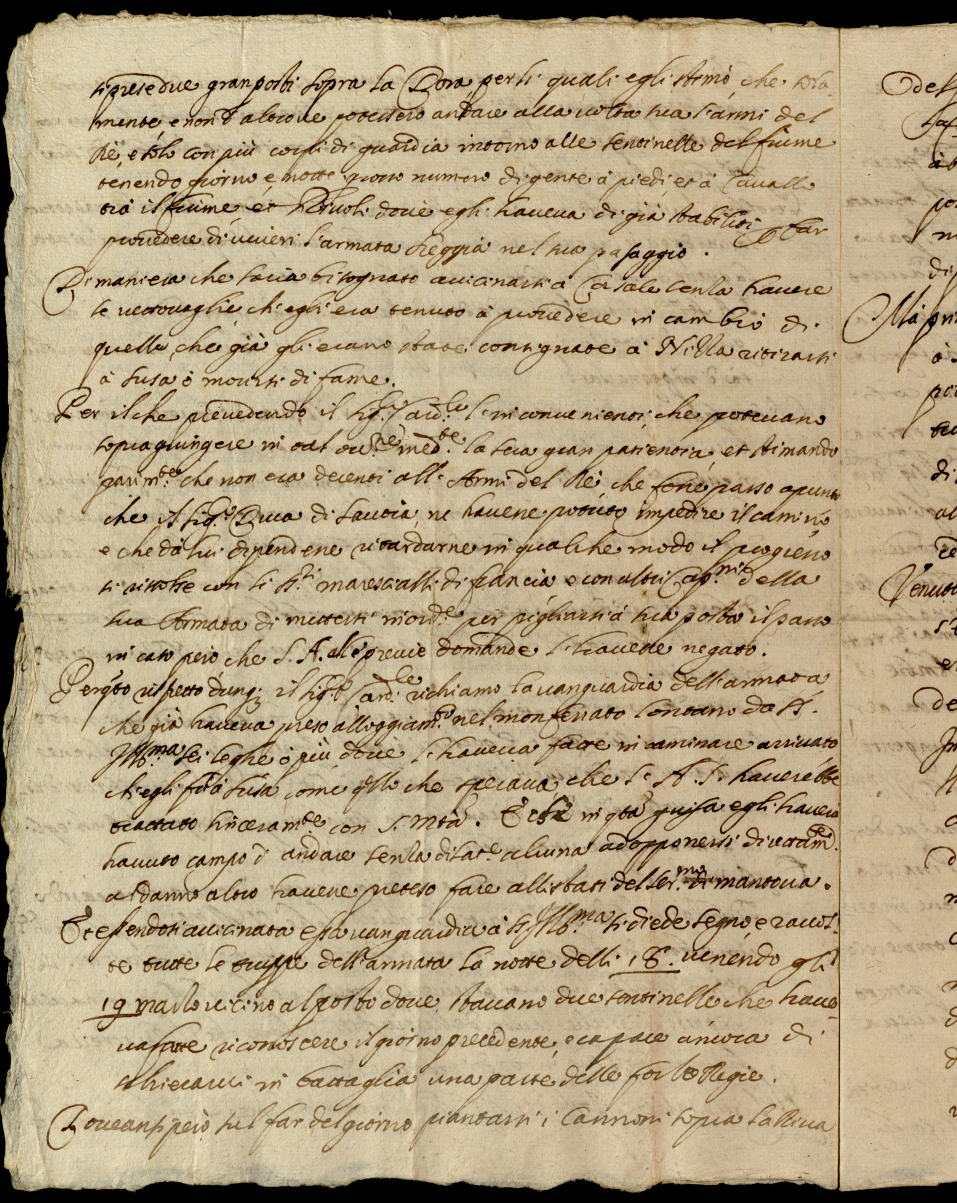 si prese due gran posti sopra la Dora per li quali egli stimò, che sola
mente, e non altrove potessero andare alla volta sua l'armi del
Rè, e solo con più corpi di guardia intorno alle sentinelle del fiume
tenendo giorno e notte grosso numero di gente à piedi et à Cavallo
trà il fiume et Rivoli dove egli haveva di già stabiliti far
provedere di viveri l'armata Reggia nel suo passaggio.
Di maniera che saria bisognato avicinarsi à Casale senza havere
le vettovaglie, ch'egli era tenuto à provedere in cambio di
quelle che già gli erano state consignate à Nizza ritirarsi
à Susa ò morirsi di fame.
Per il che prevedendo il Sig.r Card.le l'inconvenienti, che potevano
sopragiungere in tal med.te la sua gran patientia, et stimando
parim.te che non era decenti all'Armi del Rè, che
che il Sig.r Duca di Savoia, ne havene potuto impedire il camino
e che da lui dipendene ritardarne in qualche modo il progresso
si risolse con li SS.ri marescialli di francia e con altri Cap.ni della
sua Armata di mettersi in ord.e per pigliarsi à sua posta il passo
in caso però che S. A. alle previe domande l'havesse negato.
Per q.to rispetto dunq; il Sig.r Card.le richiamo la vanguardia dell'armata
che già haveva preso alloggiam.to nel monferrato lontano da S.
Ill.ma sei leghe ò più, dove l'haveva fatte incaminare arrivato
ch'egli fù à Susa come q.llo che sperava, che S. A. S. haverebbe
trattato sinceram.te con S. Mtà. Et in q.ta guisa egli haveria
havuto campo d'andare senza alcuna ad opponersi
a danno altro havene preteso fare alli stati del Ser.mo di mantova.
Et essendosi avicinata essa vanguardia à S. Ill.ma si diede segno, e racol-
te tutte le truppe dell'armata la notte delli 18. venendo gli
19 marzo vicino al posto dove stavano due sentinelle che have-
va fatte riconoscere il giorno precedente, e capace ancora di
schierarvi in battaglia una parte delle forze Regie.
Doveansi però sul far del giorno piantarsi i Cannoni sopra la Riva